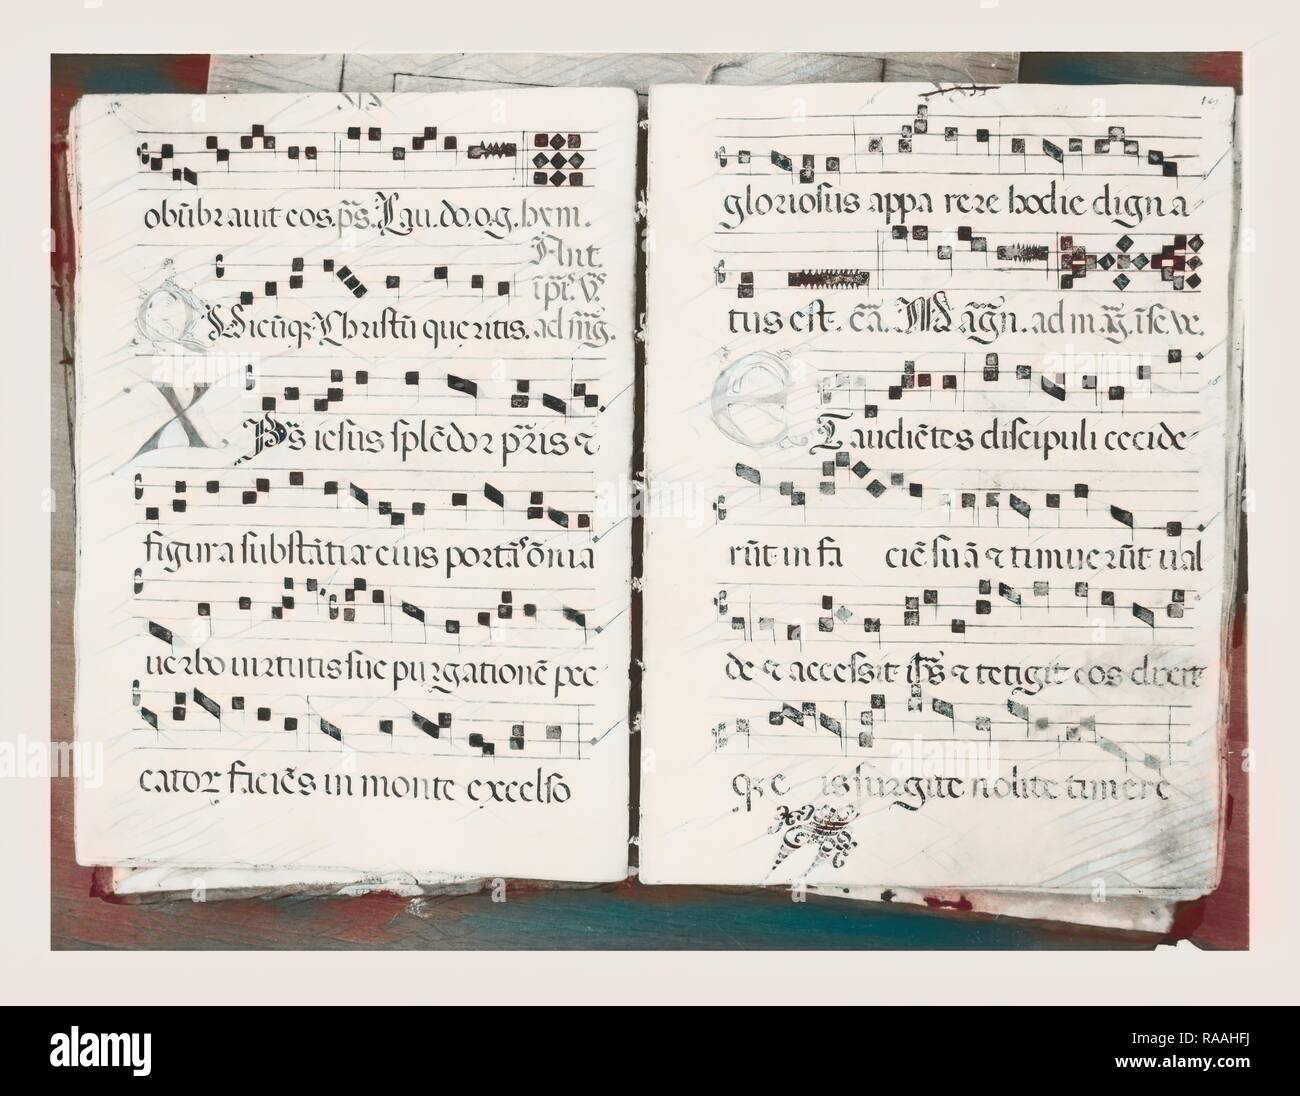 obūbravit eos. p̄s. Lau. do. o. g. hym.
Ant.
ip̄r. v̄s.
Quicūq; Christū queritis. ad m̄g.
Xp̄s iesus splēdor p̄ris ⁊
figura substātiȩ eius portās ōnia
verbo virtutis sue purgationē pec
cator faciēs in monte excelso
169
gloriosus appa rere hodie digna-
tus est. ēa. Magn̄. ad m̄g. ī sc̄. ve.
Et audiētes discipuli cecide-
rūt in fa ciē suā ⁊ timuerūt val
de ⁊ accessit ih̄s ⁊ tetigit eos dixit
q; e is surgite nolite timere
alamy
alamy
Image ID: RAAHFJ
www.alamy.com